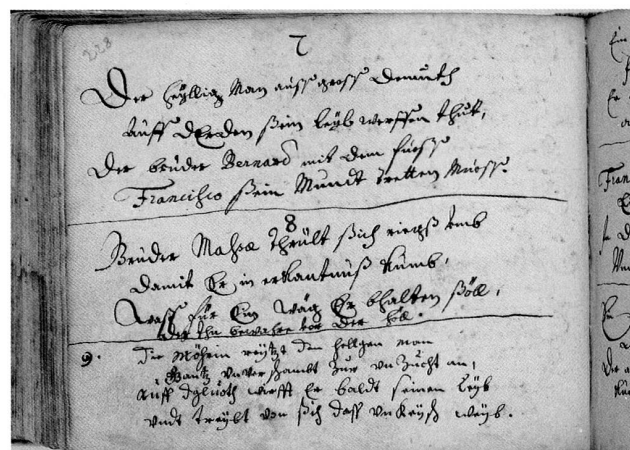 228
7
Der heyllig Man auss gross Demuth
auff d Erden sein leyb werffen thut,
Der bruder Bernard mit dem fuoss
Francisco sein Mundt tretten Muoss.
8
Bruder Masse thrült sich ringß umb
damit Er in erkantnuß kumb,
Wass für Ein wäg Er bhalten söll,
Der ihn bewahre vor der Höll.
9.
die Möhrin reytzt den heilgen man
Gantz unverschambt zur unzucht an,
auff dgluoth wirfft Er baldt seinen Leyb
undt treybt von sich dass unkeysch weyb.